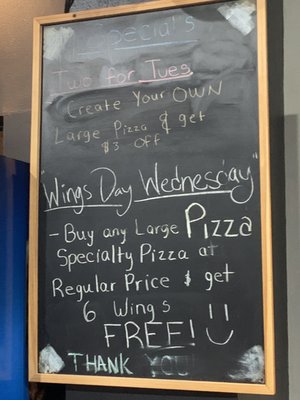 Special's
Two for Tues
Create Your OWN
Large Pizza & get
$3 OFF
"Wings Day Wednesday"
- Buy any Large Pizza
Specialty Pizza at
Regular Price & get
6 Wings
FREE! :)
THANK YOU